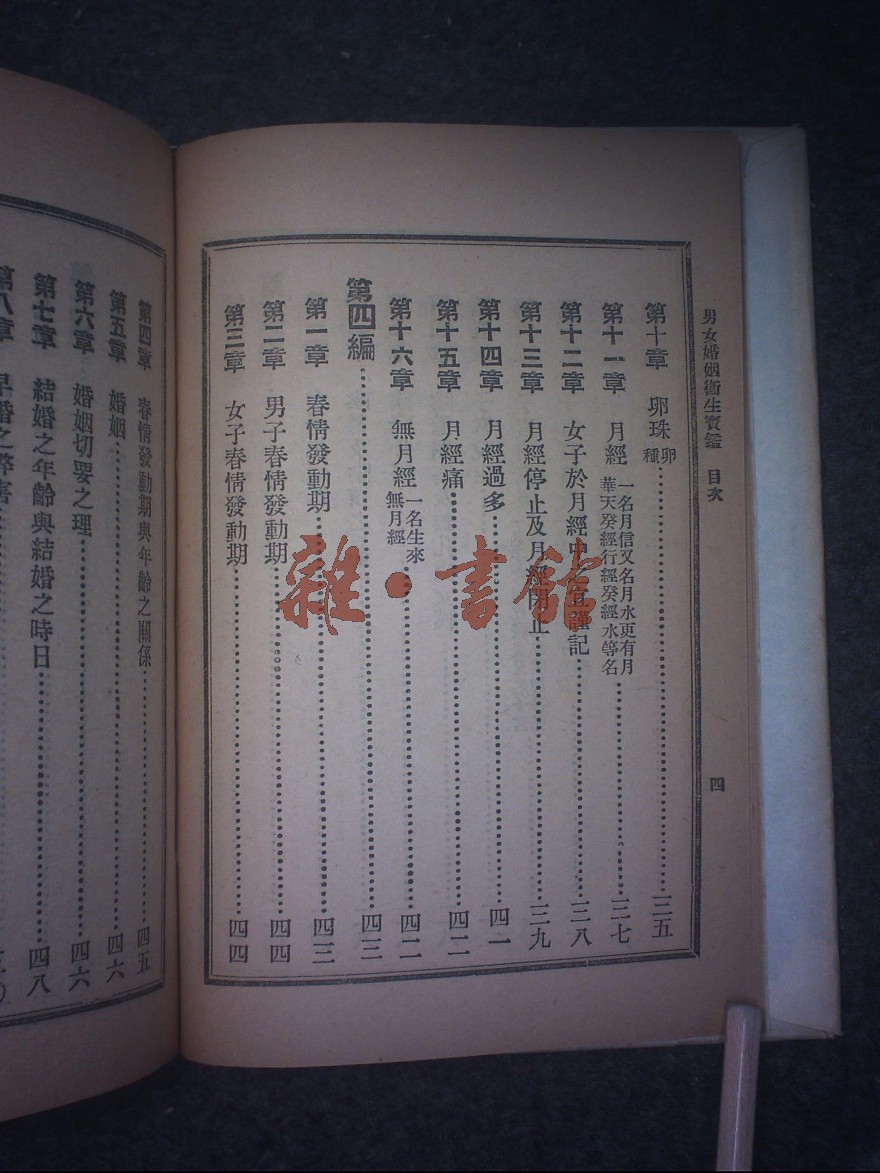 男女婚姻衞生寶鑑 目次 四
第十章 卵珠 卵種 三五
第十一章 月經 一名月信又名月水更有月華天癸經行經癸經水等名 三七
第十二章 女子於月經中之宜謹記 三八
第十三章 月經停止及月經閉止 三九
第十四章 月經過多 四一
第十五章 月經痛 四二
第十六章 無月經 一名生來無月經 四二
第四編 四三
第一章 春情發動期 四三
第二章 男子春情發動期 四四
第三章 女子春情發動期 四四
第四章 春情發動期與年齡之關係 四五
第五章 婚姻 四六
第六章 婚姻切要之理 四六
第七章 結婚之年齡與結婚之時日 四八
第八章 早婚之弊害
雜·書館